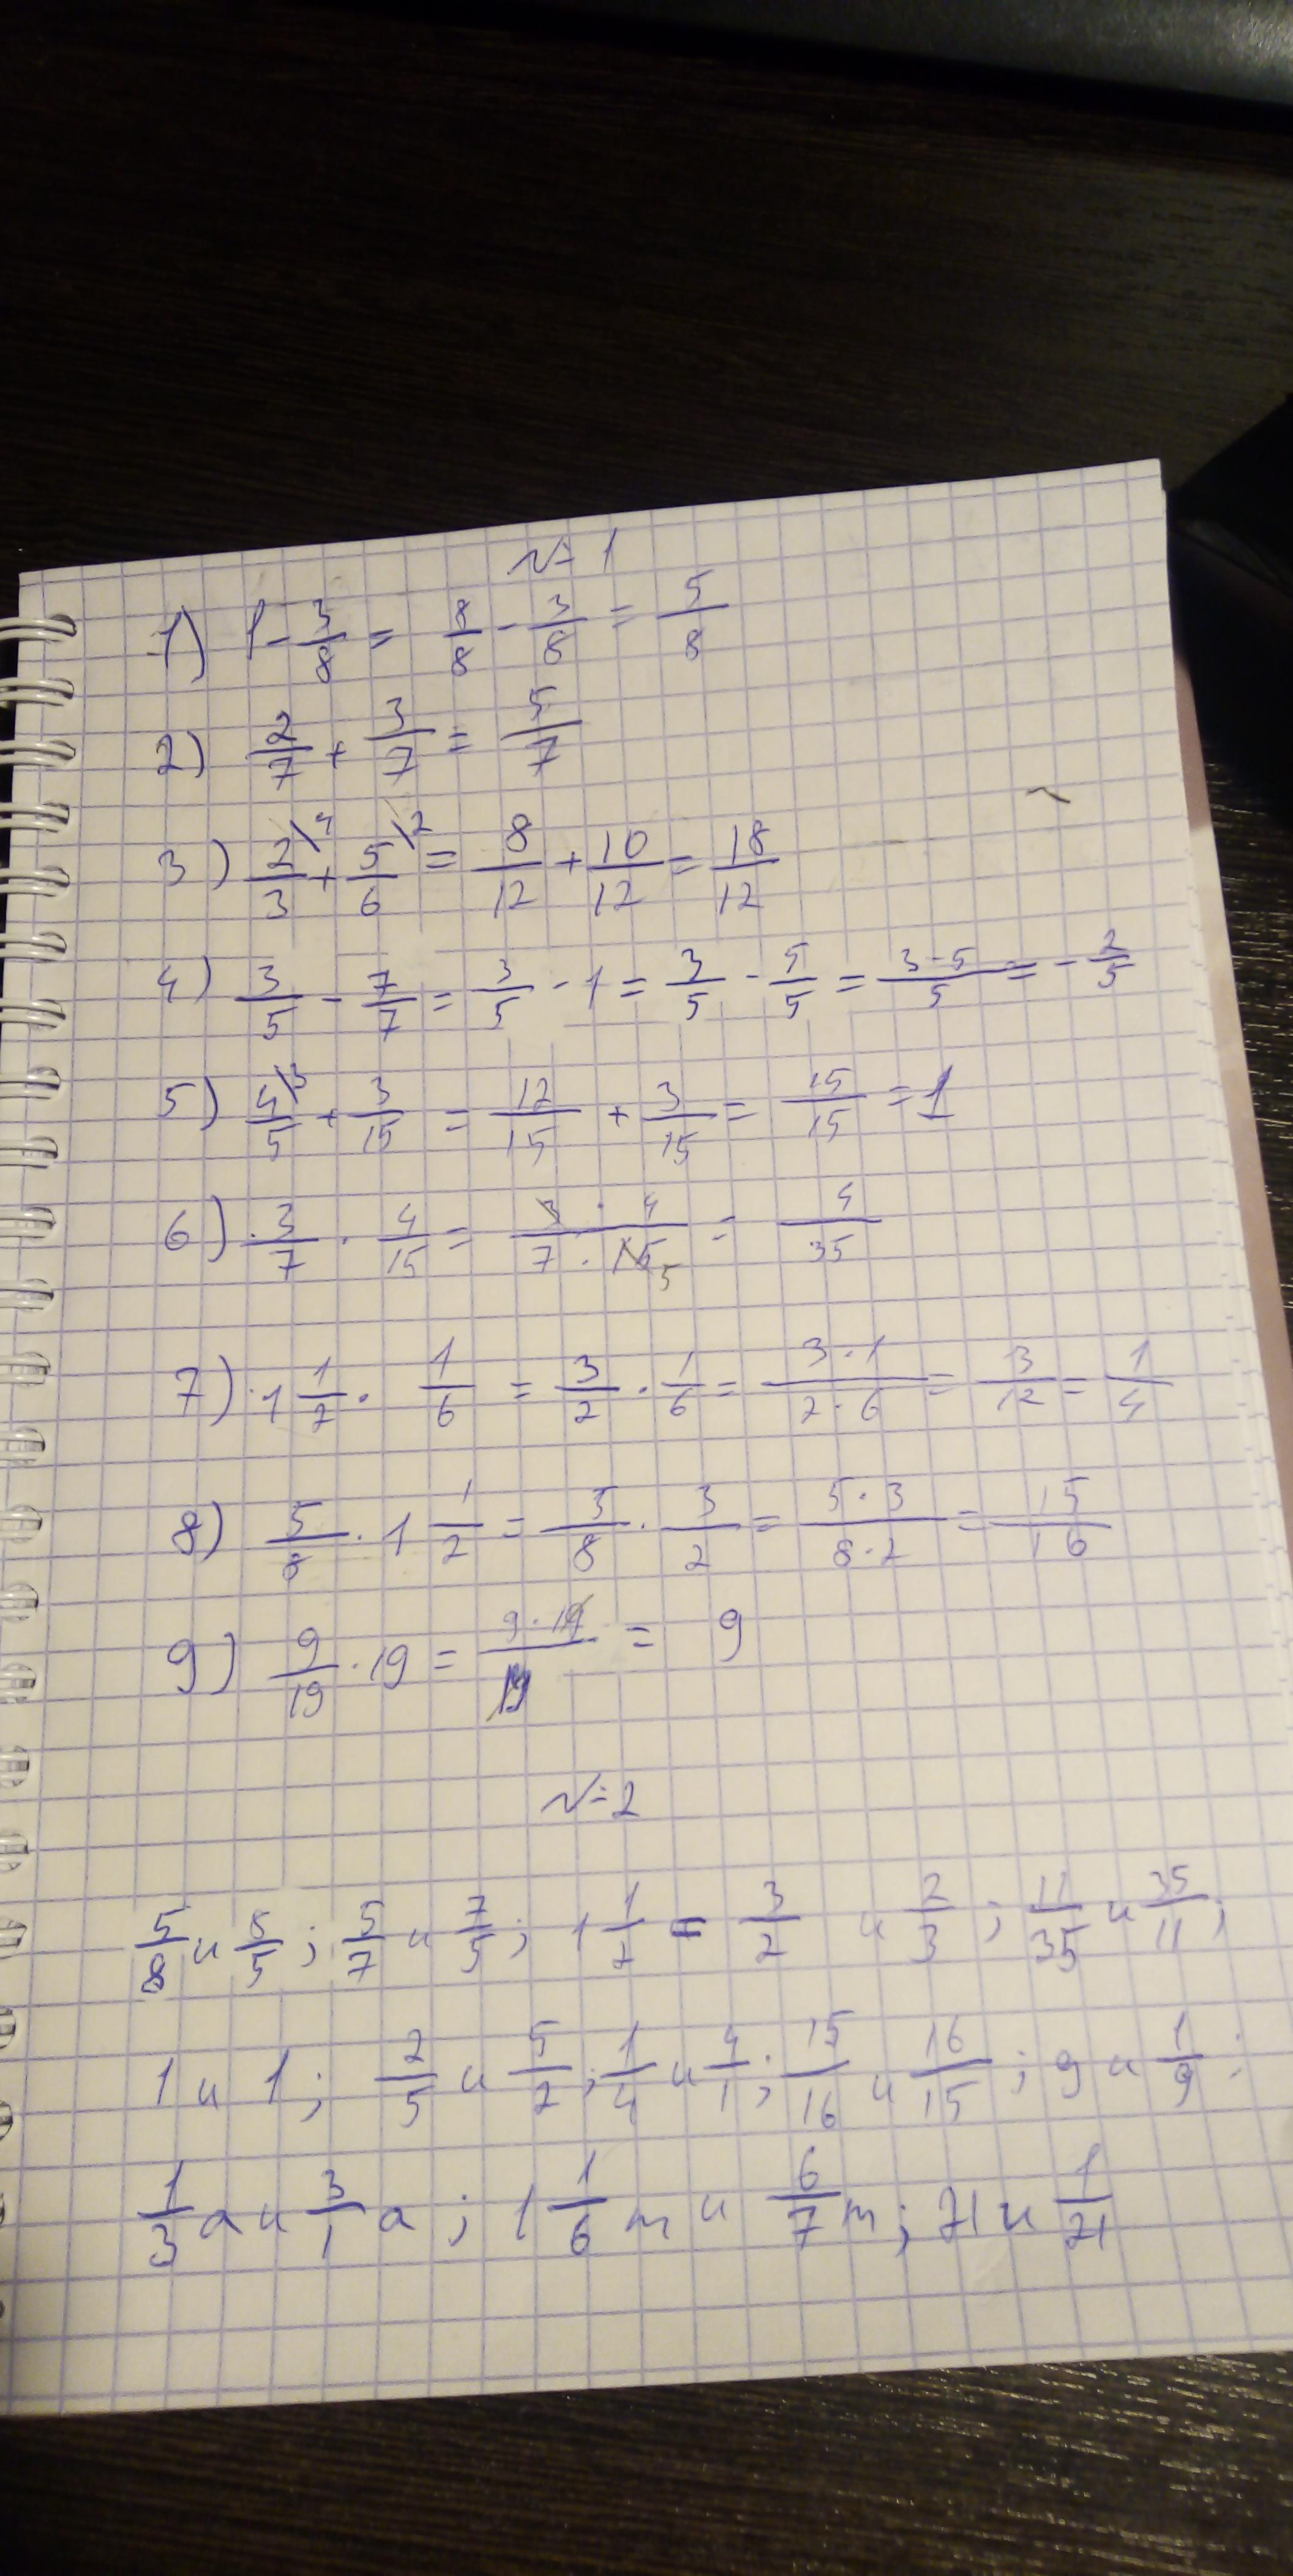 № 1
1) 1 - 3/8 = 8/8 - 3/8 = 5/8
2) 2/7 + 3/7 = 5/7
3) 2/3 \4 + 5/6 \2 = 8/12 + 10/12 = 18/12
4) 3/5 - 7/7 = 3/5 - 1 = 3/5 - 5/5 = (3-5)/5 = - 2/5
5) 4/5 \3 + 3/15 = 12/15 + 3/15 = 15/15 = 1
6) 3/7 · 4/15 = (3 · 4)/(7 · 15) 5 = 4/35
7) 1 1/2 · 1/6 = 3/2 · 1/6 = (3 · 1)/(2 · 6) = 3/12 = 1/4
8) 5/8 · 1 1/2 = 5/8 · 3/2 = (5 · 3)/(8 · 2) = 15/16
9) 9/19 · 19 = (9 · 19)/19 = 9
№ 2
5/8 и 8/5 ; 5/7 и 7/5 ; 1 1/2 = 3/2 и 2/3 ; 11/35 и 35/11 ;
1 и 1 ; 2/5 и 5/2 ; 1/4 и 4/1 ; 15/16 и 16/15 ; 9 и 1/9 ;
1/3 a и 3/1 a ; 1 1/6 m и 6/7 m ; 21 и 1/21